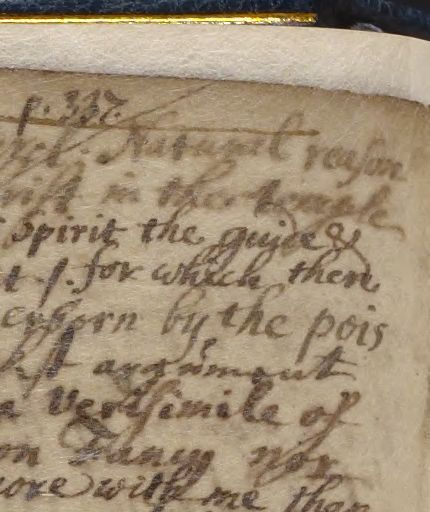 p. 337.
Natural reason
in the temple
Spirit the guide &
for which then
by the pois
argument
a Verisimile of
on Fancy nor
ore with me than